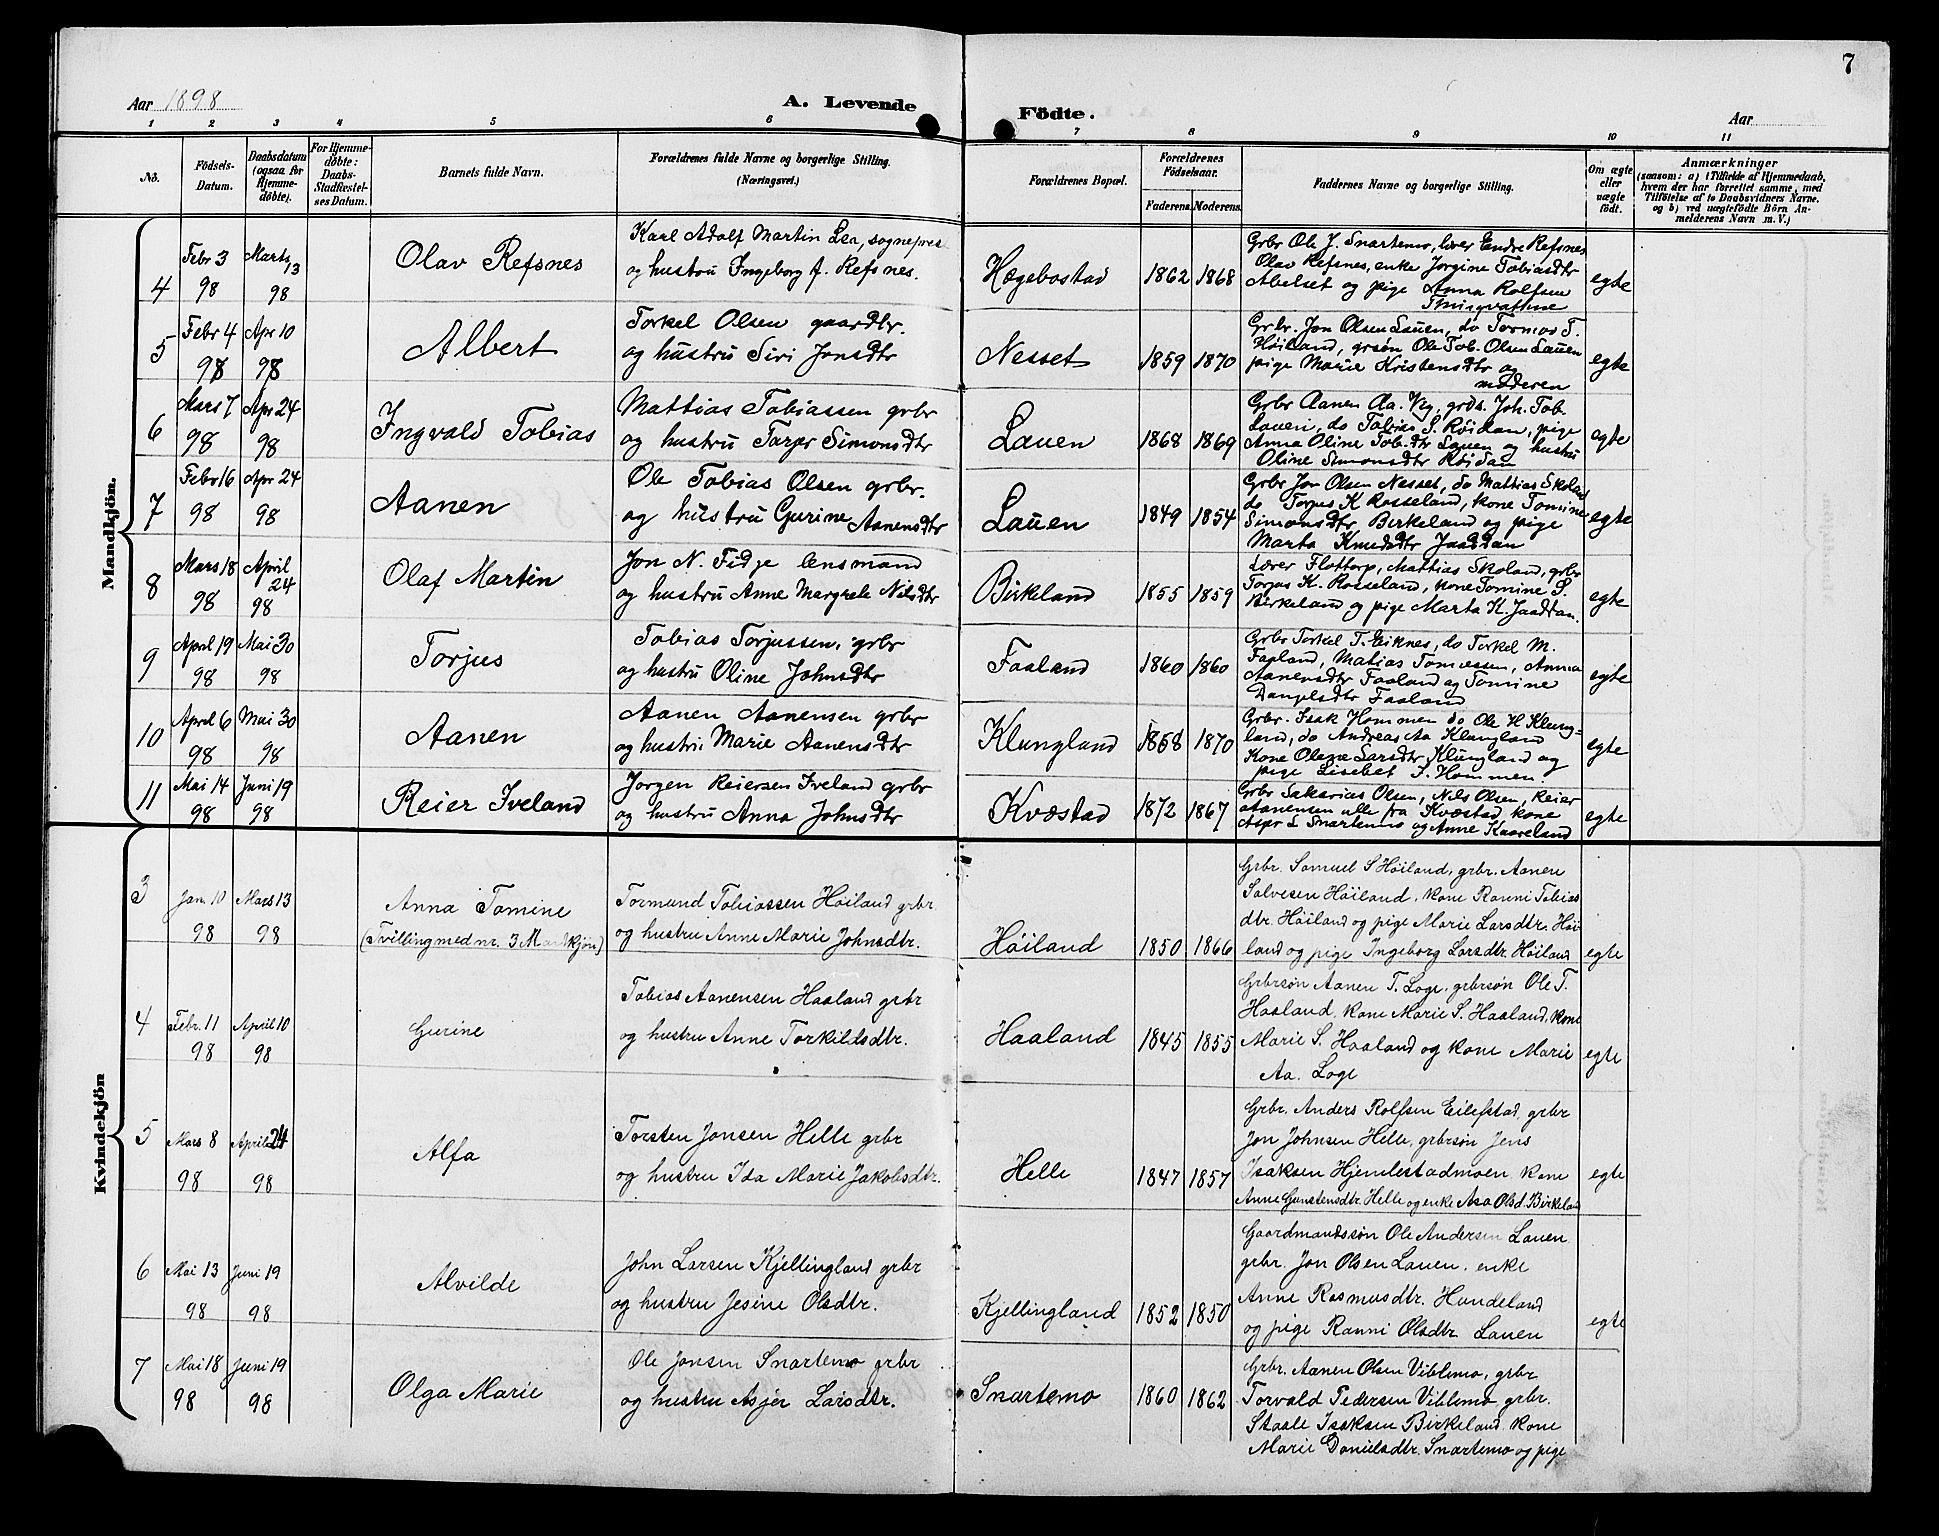 7
Aar 1898
A. Levende Födte.
Aar
1 2 3 4 5 6 7 8 9 10 11
No.
Födsels-Datum.
Daabsdatum (ogsaa for Hjemme-döbte).
For Hjemme-döbte: Daabs-Stadfæstel-ses Datum.
Barnets fulde Navn.
Forældrenes fulde Navne og borgerlige Stilling. (Næringsvei.)
Forældrenes Bopæl.
Forældrenes Födselsaar.
Faderens. Moderens.
Faddernes Navne og borgerlige Stilling.
Om ægte eller uægte födt.
Anmærkninger
(saasom: a) i Tilfælde af Hjemmedaab, hvem der har forrettet samme, med Tilföielse af to Daabsvidners Navne. og b) ved uægtefödte Börn Anmelderens Navn m. V.)
Mandkjön.
4 Febr 3 98 Marts 13 98 Olav Refsnes
Karl Adolf Martin Lea, sognepres
og hustru Ingeborg f. Refsnes.
Hægebostad 1862 1868
Grbr Ole J. Snartemo, lærer Endre Refsnes
Olav Refsnes, enke Jorgine Tobiasdtr
Abelset og pige Anna Rolfsen
egte
5 Febr 4 98 Apr 10 98 Albert
Torkel Olsen gaardbr.
og hustru Siri Jonsdtr
Nesset 1859 1870
Grbr. Jon Olsen Lauen, do Tormos T.
Høiland, grsøn Ole Tob. Olsen Lauen
pige Marie Kristensdtr og
moderen
egte
6 Mars 7 98 Apr 24 98 Ingvald Tobias
Mattias Tobiassen grbr
og hustru Torjer Simonsdtr
Lauen 1868 1869
Grbr Aanen Aa. Veg, grds. Joh. Tob.
Lauen, do Tobias S. Røidan, pige
Anna Oline Tob.dtr Lauen og hustru
Oline Simonsdtr Røidan
egte
7 Febr 16 98 Apr 24 98 Aanen
Ole Tobias Olsen grbr.
og hustru Gurine Aanensdtr
Lauen 1849 1854
Grbr Jon Olsen Nesset, do Mattias Skoland
do Torjus K Rosseland, kone Tomine
Simonsdtr Birkeland og pige
Marta Knudsdtr Jaaddan
egte
8 Mars 18 98 April 24 98 Olaf Martin
Jon N. Fidje lensmand
og hustru Anne Margrete Nilsdtr
Birkeland 1855 1859
Lærer Flottorp, Mattias Skoland, grbr
Torjus K. Rosseland, kone Tomine S.
Birkeland og pige Marta K. Jaaddan.
egte
9 April 19 98 Mai 30 98 Torjus
Tobias Torjussen, grbr
og hustru Oline Johnsdtr
Faaland 1860 1860
Grbr Torkel T. Eiknes, do Torkel M.
Faaland, Matias Tomassen, Anna
Aanensdtr Faaland og Tomine
Danielsdtr Faaland
egte
10 April 6 98 Mai 30 98 Aanen
Aanen Aanensen grbr
og hustru Marie Aanensdtr
Klungland 1868 1870
Grbr. Isak Hommen do Ole H Klung-
land, do Andreas Aa Klungland
Kone Olene Larsdtr Klungland og
pige Lisebet I. Hommen.
egte
11 Mai 14 98 Juni 19 98 Reier Iveland
Jorgen Reiersen Iveland grbr
og hustru Anna Johnsdtr
Kvæstad 1872 1867
Grbr Sakarias Olsen, Nils Olsen, Reier
Aanensen alle fra Kvæstad kone
Asjer L Snartemo og Anne Kaareland
egte
Kvindekjön
3 Jan. 10 98 Mars 13 98 Anna Tomine
(Tvilling med nr. 3 Mandkjøn)
Tormund Tobiassen Høiland grbr.
og hustru Anne Marie Johnsdtr.
Høiland 1850 1866
Grbr. Samuel S Høiland, grbr. Aanen
Salvesen Høiland, kone Ranni Tobias
dtr. Høiland og pige Marie Larsdtr. Høi
land og pige Ingeborg Larsdtr. Høiland
egte
4 Febr. 11 98 April 10 98 Gurine
Tobias Aanensen Haaland grbr
og hustru Anne Torkildsdtr.
Haaland 1845 1855
Grbrsøn Aanen T. Loge, grbrsøn Ole T.
Haaland, kone Marie S. Haaland, kone
Marie S. Haaland og kone Marie
Aa. Loge
egte
5 Mars 8 98 April 24 98 Alfa
Torsten Jonsen Helle grbr
og hustru Ida Marie Jakobsdtr.
Helle 1847 1857
Grbr. Anders Rolfsen Eilefstad, grbr
Jon Johnsen Helle, grbrsøn Jens
Isaksen Hjemlestadmoen kone
Anne Gunstensdtr. Helle og enke Asa Olsd. Birkeland
egte
6 Mai 13 98 Juni 19 98 Alvilde
John Larsen Kjellingland grbr
og hustru Jesine Olsdtr.
Kjellingland 1852 1850
Gaardmandssøn Ole Andersen Lauen
grbr. Jon Olsen Lauen, enke
Anne Rasmusdtr. Hundeland
og pige Ranni Olsdtr Lauen
egte
7 Mai 18 98 Juni 19 98 Olga Marie
Ole Jonsen Snartemo grbr
og hustru Asjer Larsdtr.
Snartemo 1860 1862
Grbr. Aanen Olsen Viblemo, grbr
Torvald Pedersen Viblemo grbr.
Staale Isaksen Birkeland. kone
Marie Danielsdtr. Snartemo og pige